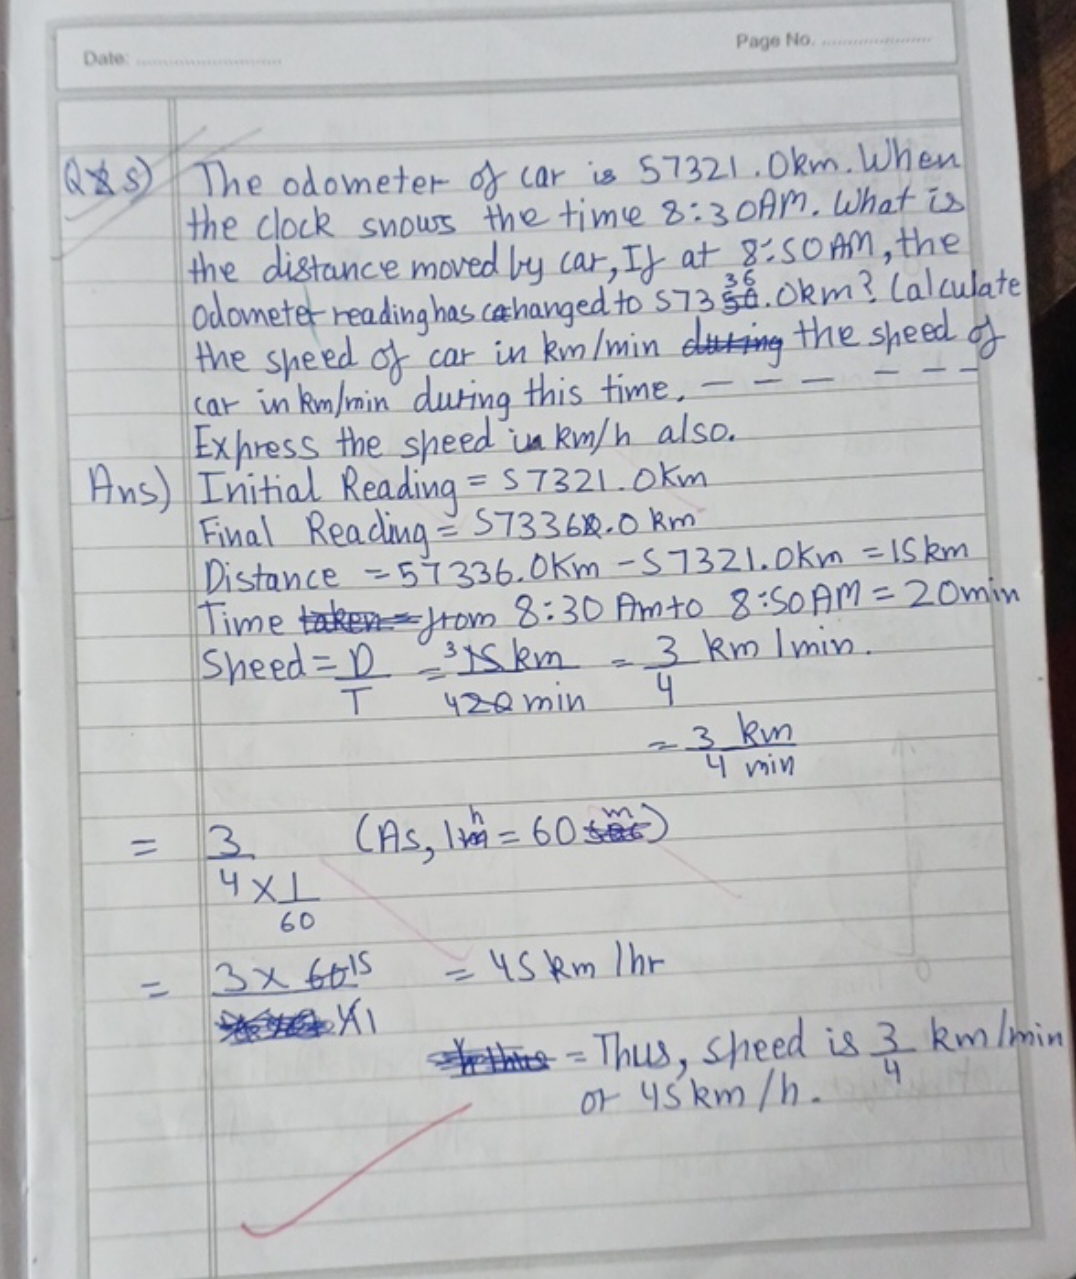 Date:
Page No.
Q 5) The odometer of car is 57321.0km. When
the clock snows the time 8:30AM. What is
the distance moved by car, If at 8:50 AM, the
odometer reading has changed to 57336.0km? Calculate
the speed of car in km/min during the speed of
car in km/min during this time. — — — — — —
Express the speed in km/h also.
Ans) Initial Reading = 57321.0Km
Final Reading = 57336.0 km
Distance = 57336.0Km - 57321.0Km = 15km
Time taken = from 8:30 Am to 8:50AM = 20min
Speed = D/T = 3 15 km / 4 20 min = 3/4 km/min.
= 3 km / 4 min
= 3 / 4 × 1/60 (As, 1h = 60 m)
= 3 × 60 15 / 4 1 = 45 km/hr
= Thus, speed is 3/4 km/min
or 45 km/h.